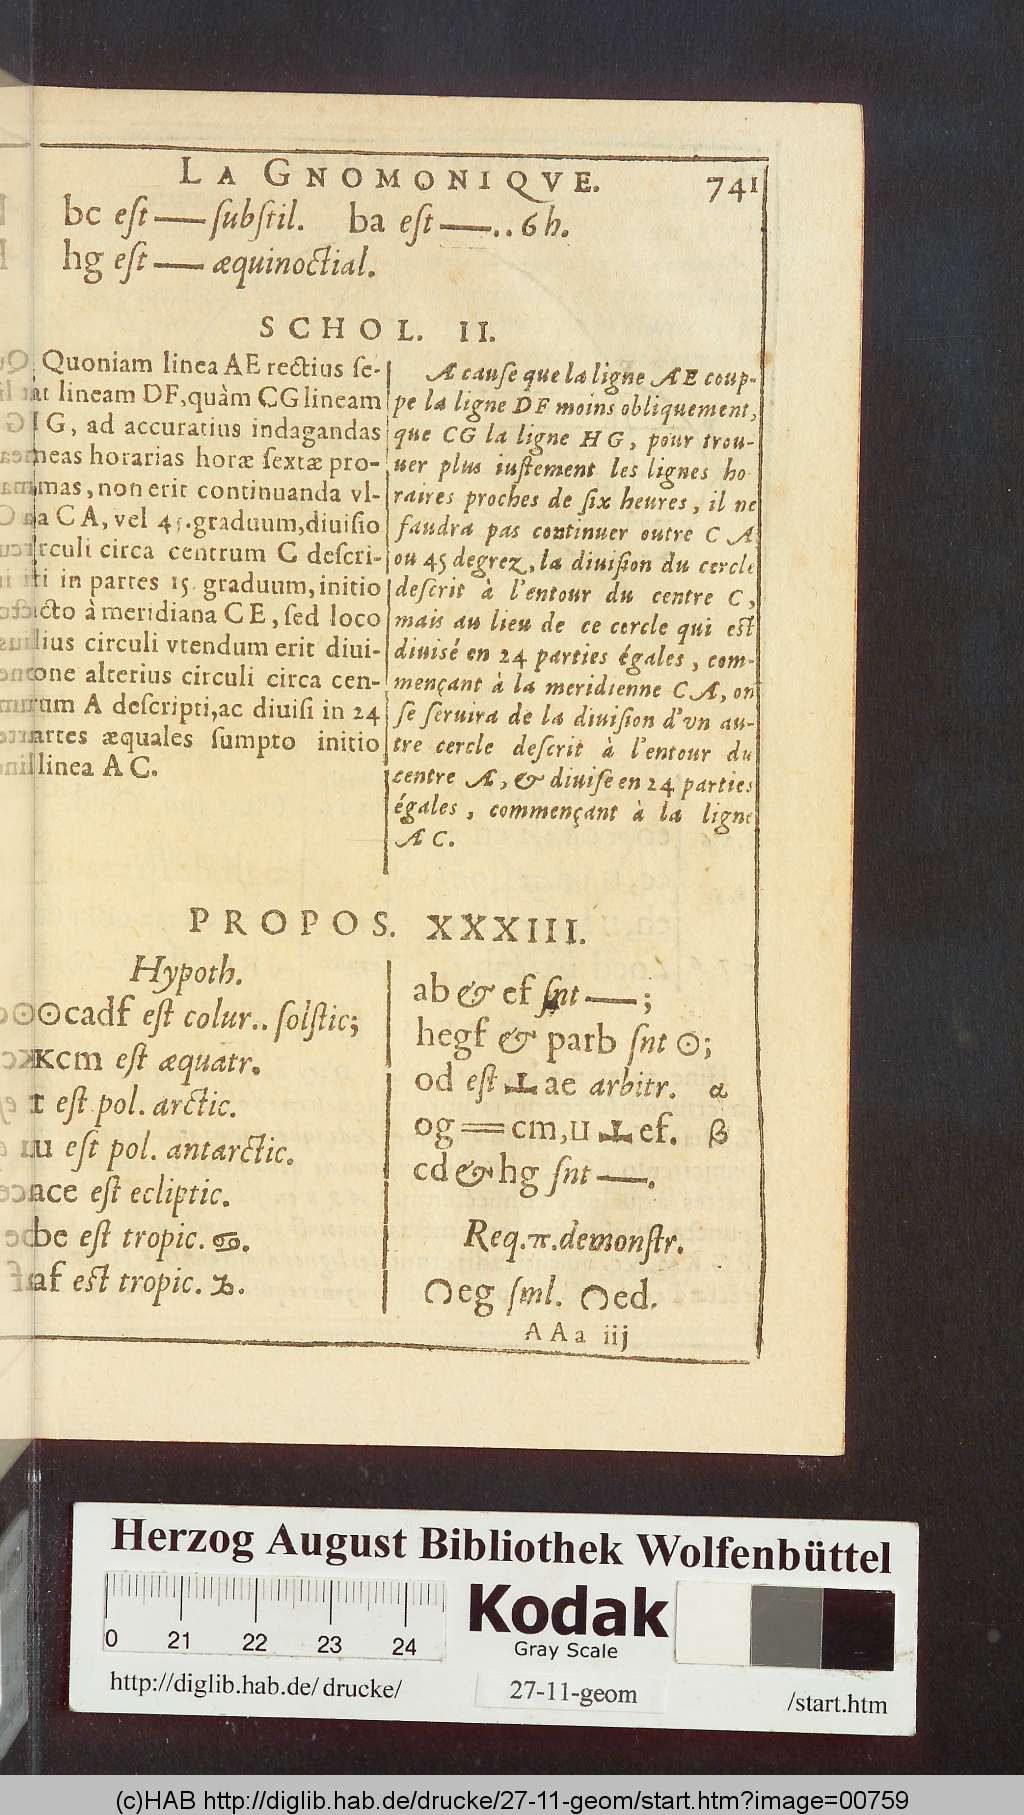 LA GNOMONIQVE. 741
bc eſt — ſubſtil. ba eſt —.. 6 h.
hg eſt — æquinoctial.
SCHOL. II.
Quoniam linea AE rectius ſe-
cat lineam DF, quàm CG lineam
G, ad accuratius indagandas
lineas horarias horæ ſextæ pro-
ximas, non erit continuanda vl-
tra CA, vel 45. graduum, diuiſio
circuli circa centrum C deſcri-
pti in partes 15. graduum, initio
ſumto à meridiana CE, ſed loco
illius circuli vtendum erit diui-
ſione alterius circuli circa cen-
trum A deſcripti, ac diuiſi in 24
partes æquales ſumpto initio
linea AC.
A cauſe que la ligne AE coup-
pe la ligne DF moins obliquement,
que CG la ligne HG, pour trou-
uer plus iuſtement les lignes ho
raires proches de ſix heures, il ne
faudra pas continuer outre CA
ou 45 degrez, la diuiſion du cercle
deſcrit à l'entour du centre C,
mais au lieu de ce cercle qui eſt
diuisé en 24 parties égales, com-
mençant à la meridienne CA, on
ſe ſeruira de la diuiſion d'vn au-
tre cercle deſcrit à l'entour du
centre A, & diuiſe en 24 parties
égales, commençant à la ligne
AC.
PROPOS. XXXIII.
Hypoth.
⊙cadf eſt colur.. ſolſtic;
kcm eſt æquatr.
eſt pol. arctic.
u eſt pol. antarctic.
ace eſt ecliptic.
be eſt tropic. ♋.
af eſt tropic. ♑.
ab & ef ſnt —;
hegf & parb ſnt ⊙;
od eſt ⊥ ae arbitr. α
og = cm, u ⊥ ef. β
cd & hg ſnt —.
Req. π. demonſtr.
⌒eg ſml. ⌒ed.
AAa iij
Herzog August Bibliothek Wolfenbüttel
0 21 22 23 24
Kodak
Gray Scale
http://diglib.hab.de/ drucke/ 27-11-geom /start.htm
(c)HAB http://diglib.hab.de/drucke/27-11-geom/start.htm?image=00759